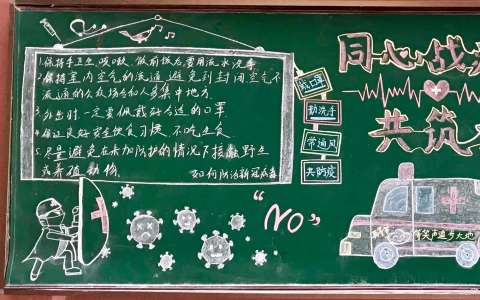 1.保持手卫生,咳嗽、饭前饭后,要用流水洗手。
2.保持室内空气的流通,避免到封闭空气不
流通的公众场合和人多集中地方。
3.外出时,一定要佩戴好合适的口罩。
4.保证良好安全饮食习惯,不吃生食
5.尽量避免在未加防护的情况下接触野生
或养殖动物。
如何防治新冠病毒
戴口罩
勤洗手
常通风
共防疫
同心战
共筑
"NO"
笑声遍乡大地